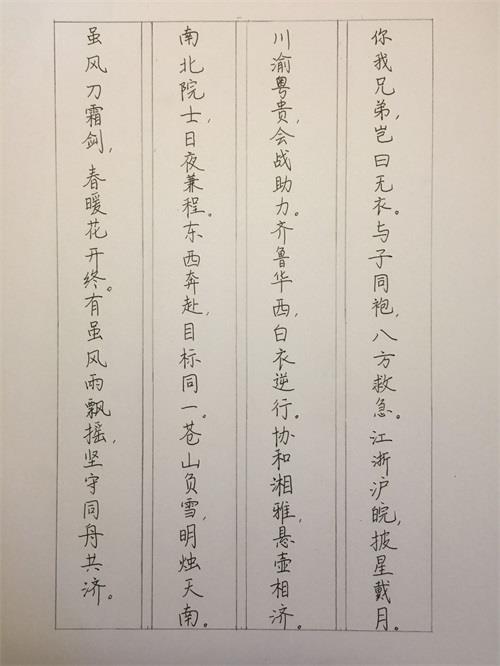 你我兄弟，岂曰无衣。与子同袍，八方救急。江浙沪皖，披星戴月。
川渝粤贵，会战助力。齐鲁华西，白衣逆行。协和湘雅，悬壶相济。
南北院士，日夜兼程。东西奔赴，目标同一。苍山负雪，明烛天南。
虽风刀霜剑，春暖花开终。有虽风雨飘摇，坚守同舟共济。